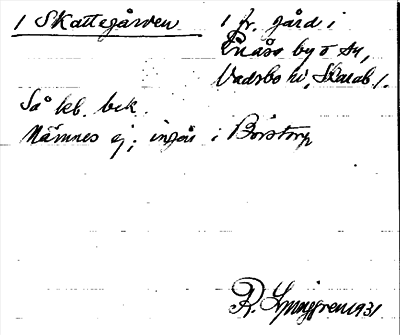 1 Skattegården
1 fr. gård i
Enåsa by o sn,
Vadsbo hd, Skarab l.
Så kb. bek.
Nämnes ej, ingår i Börstorp
R. Ljunggren 1931